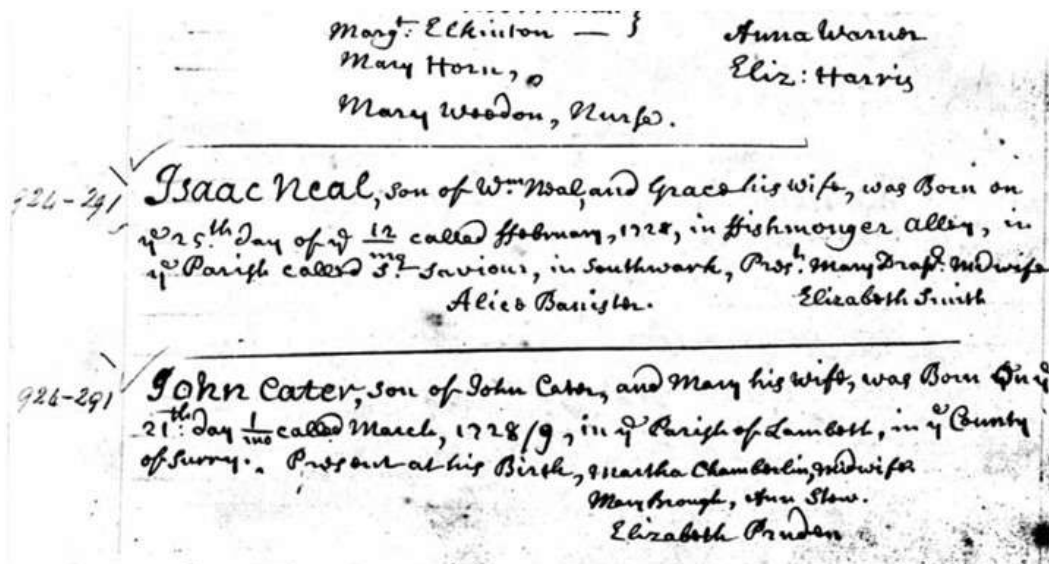 Margt. Elkinton — }
Anna Warner
Mary Horn,
Eliz: Harris
Mary Weedon, Nurse.
924-291 Isaac Neal, son of Wm. Neal, and Grace his wife, was Born on
ye 25th day of ye 12 mo called ffebruary, 1728, in ffishmonger Alley, in
ye Parish called St. Saviour, in Southwark, Presh. Mary Drap. Midwife
Alice Banister. Elizabeth Smith
924-291 John Cater, son of John Cater, and Mary his wife, was Born On ye
21th. day 1/mo called March, 1728/9, in ye Parish of Lambeth, in ye County
of Surry. Present at his Birth, Martha Chamberlin, Midwife
Mary Brough, Ann Stow.
Elizabeth Pruden